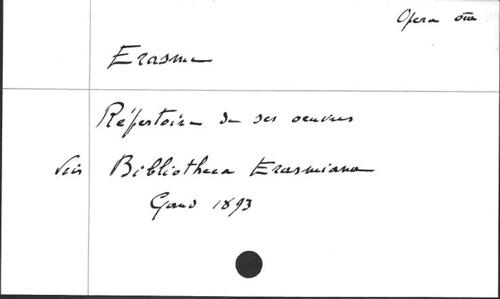 Opera
Erasme
Répertoire de ses oeuvres
Voir Bibliotheca Erasmiana
Gand 1893